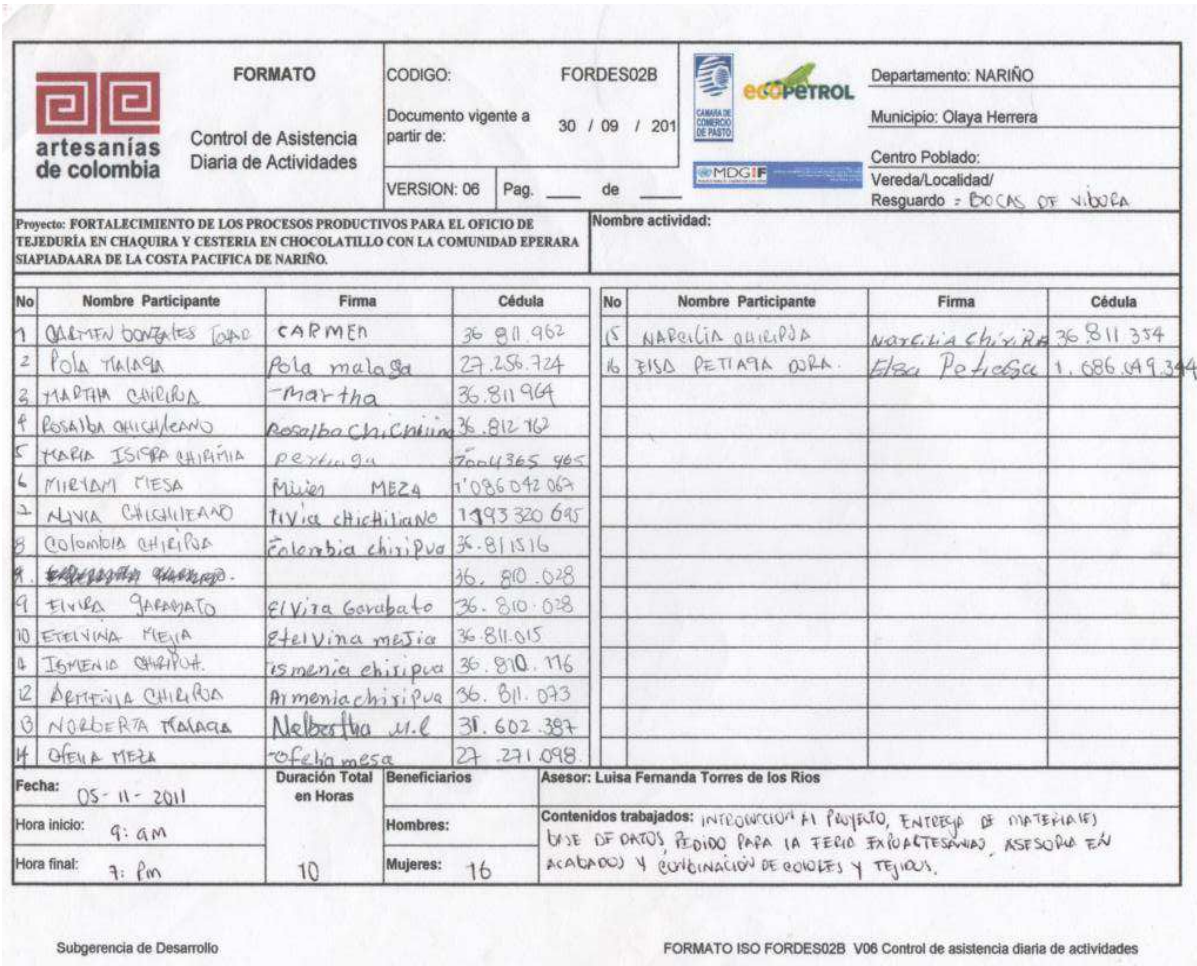 artesanías
de colombia
FORMATO
Control de Asistencia
Diaria de Actividades
CODIGO: FORDES02B
Documento vigente a
partir de: 30 / 09 / 201
VERSION: 06 Pag. ___ de ___
CAMARA DE
COMERCIO
DE PASTO
ecoPETROL
MDGIF
Departamento: NARIÑO
Municipio: Olaya Herrera
Centro Poblado:
Vereda/Localidad/
Resguardo = BOCAS DE VIBORA
Proyecto: FORTALECIMIENTO DE LOS PROCESOS PRODUCTIVOS PARA EL OFICIO DE
TEJEDURÍA EN CHAQUIRA Y CESTERIA EN CHOCOLATILLO CON LA COMUNIDAD EPERARA
SIAPIADAARA DE LA COSTA PACIFICA DE NARIÑO.
Nombre actividad:
No Nombre Participante Firma Cédula
1 CARMEN CARMEN 36 811.962
2 POLA MALAGA Pola malaga 27.256.724
3 MARTHA CHIRIPUA Martha 36.811964
4 ROSALBA CHICHILIANO Rosalba 36.812 762
5 MARIA CHIRIMIA
6 MIRYAM MESA MEZA 1'086042067
7 CHICHILIANO chichiliano 1193320695
8 Colombia CHIRIPUA Colombia chiripua 36.811516
9. 36. 810.028
9 ELVIRA GARABATO Elvira Garabato 36. 810.028
10 ETELVINA MEJIA Etelvina mejia 36.811.015
11 ISMENIA CHIRIPUA. ismenia chiripua 36.810.776
12 ARMENIA CHIRIPUA Armenia chiripua 36. 811.073
13 NORBERTA MALAGA Nelbertha M.l 31.602.387
14 OFELIA MEZA Ofelia mesa 27.271.098
No Nombre Participante Firma Cédula
15 NARCILIA CHIRIPUA Narcilia 36.811354
16 ELSA Elsa 1.086.049.344
Fecha: 05-11-2011
Hora inicio: 9: am
Hora final: 7: Pm
Duración Total
en Horas
10
Beneficiarios
Hombres:
Mujeres: 16
Asesor: Luisa Fernanda Torres de los Rios
Contenidos trabajados: INTRODUCCION AL PROYECTO, ENTREGA DE MATERIALES
BASE DE DATOS, PEDIDO PARA LA FERIA EXPOARTESANIAS, ASESORIA EN
ACABADOS Y COMBINACIÓN DE COLORES Y TEJIDOS.
Subgerencia de Desarrollo
FORMATO ISO FORDES02B V06 Control de asistencia diaria de actividades